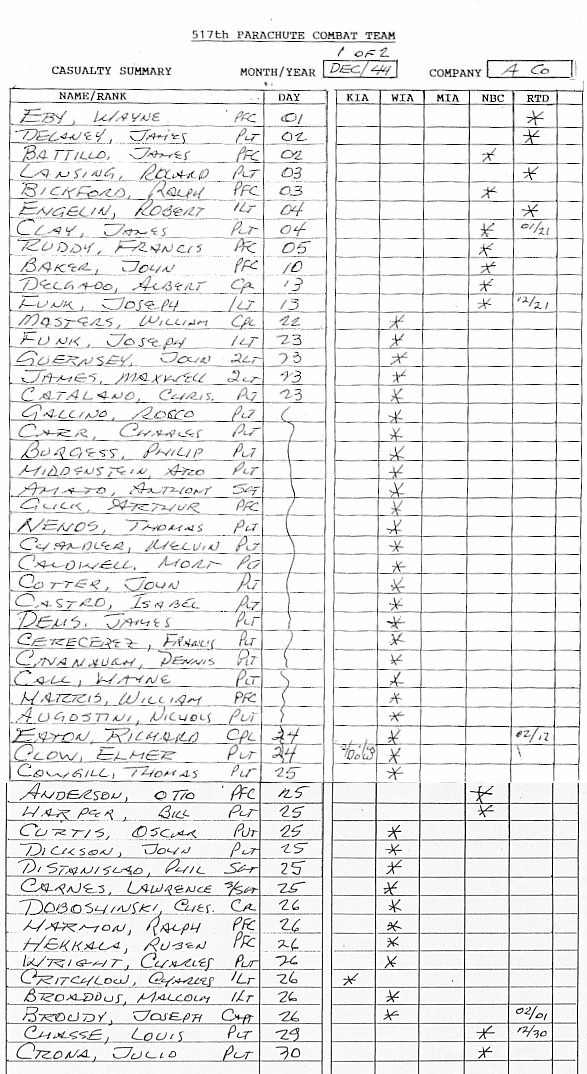 517th PARACHUTE COMBAT TEAM
1 OF 2
CASUALTY SUMMARY MONTH/YEAR DEC/44 COMPANY A Co
NAME/RANK DAY KIA WIA MIA NBC RTD
EBY, WAYNE PFC 01 *
DELANEY, JAMES PLT 02 *
BATTILLO, JAMES PFC 02 *
LANSING, ROLAND PLT 03 *
BICKFORD, RALPH PFC 03 *
ENGELIN, ROBERT 1LT 04 *
CLAY, JAMES PLT 04 * 01/21
RUDDY, FRANCIS PFC 05 *
BAKER, JOHN PFC 10 *
DELGADO, ALBERT CPL 13 *
FUNK, JOSEPH 1LT 13 * 12/21
MASTERS, WILLIAM CPL 22 *
FUNK, JOSEPH 1LT 23 *
GUERNSEY, JOHN 2LT 23 *
JAMES, MAXWELL 2LT 23 *
CATALANO, CHRIS. PLT 23 *
GALLINO, ROCCO PLT *
CARR, CHARLES PLT *
BURGESS, PHILIP PLT *
MIDDENSTEIN, PLT *
AMATO, ANTHONY SGT *
GULK, ARTHUR PFC *
NENOS, THOMAS PLT *
CHANDLER, MELVIN PLT *
CALDWELL, MORT *
COTTER, JOHN PLT *
CASTRO, ISABEL PLT *
DEMS, JAMES PLT *
CERECEREZ, FRANCIS PLT *
CAVANAUGH, DENNIS PLT *
CALL, WAYNE PLT *
HARRIS, WILLIAM PFC *
AUGOSTINI, NICHOLS PLT *
EATON, RICHARD CPL 24 * 02/12
CLOW, ELMER PLT 24 *
COWGILL, THOMAS PLT 25 *
ANDERSON, OTTO PFC 25 *
HARPER, BILL PLT 25 *
CURTIS, OSCAR PVT 25 *
DICKSON, JOHN PLT 25 *
DISTANISLAO, PHIL SGT 25 *
CARNES, LAWRENCE S/SGT 25 *
DOBOSHINSKI, CHES. CPL 26 *
HARMON, RALPH PFC 26 *
HEKKALA, RUBEN PFC 26 *
WRIGHT, CHARLES PLT 26 *
CRITCHLOW, CHARLES 1LT 26 *
BROADDUS, MALCOLM 1LT 26 *
BROUDY, JOSEPH CAPT 26 * 02/01
CHASSE, LOUIS PLT 29 * 12/30
CRONA, JULIO PLT 30 *